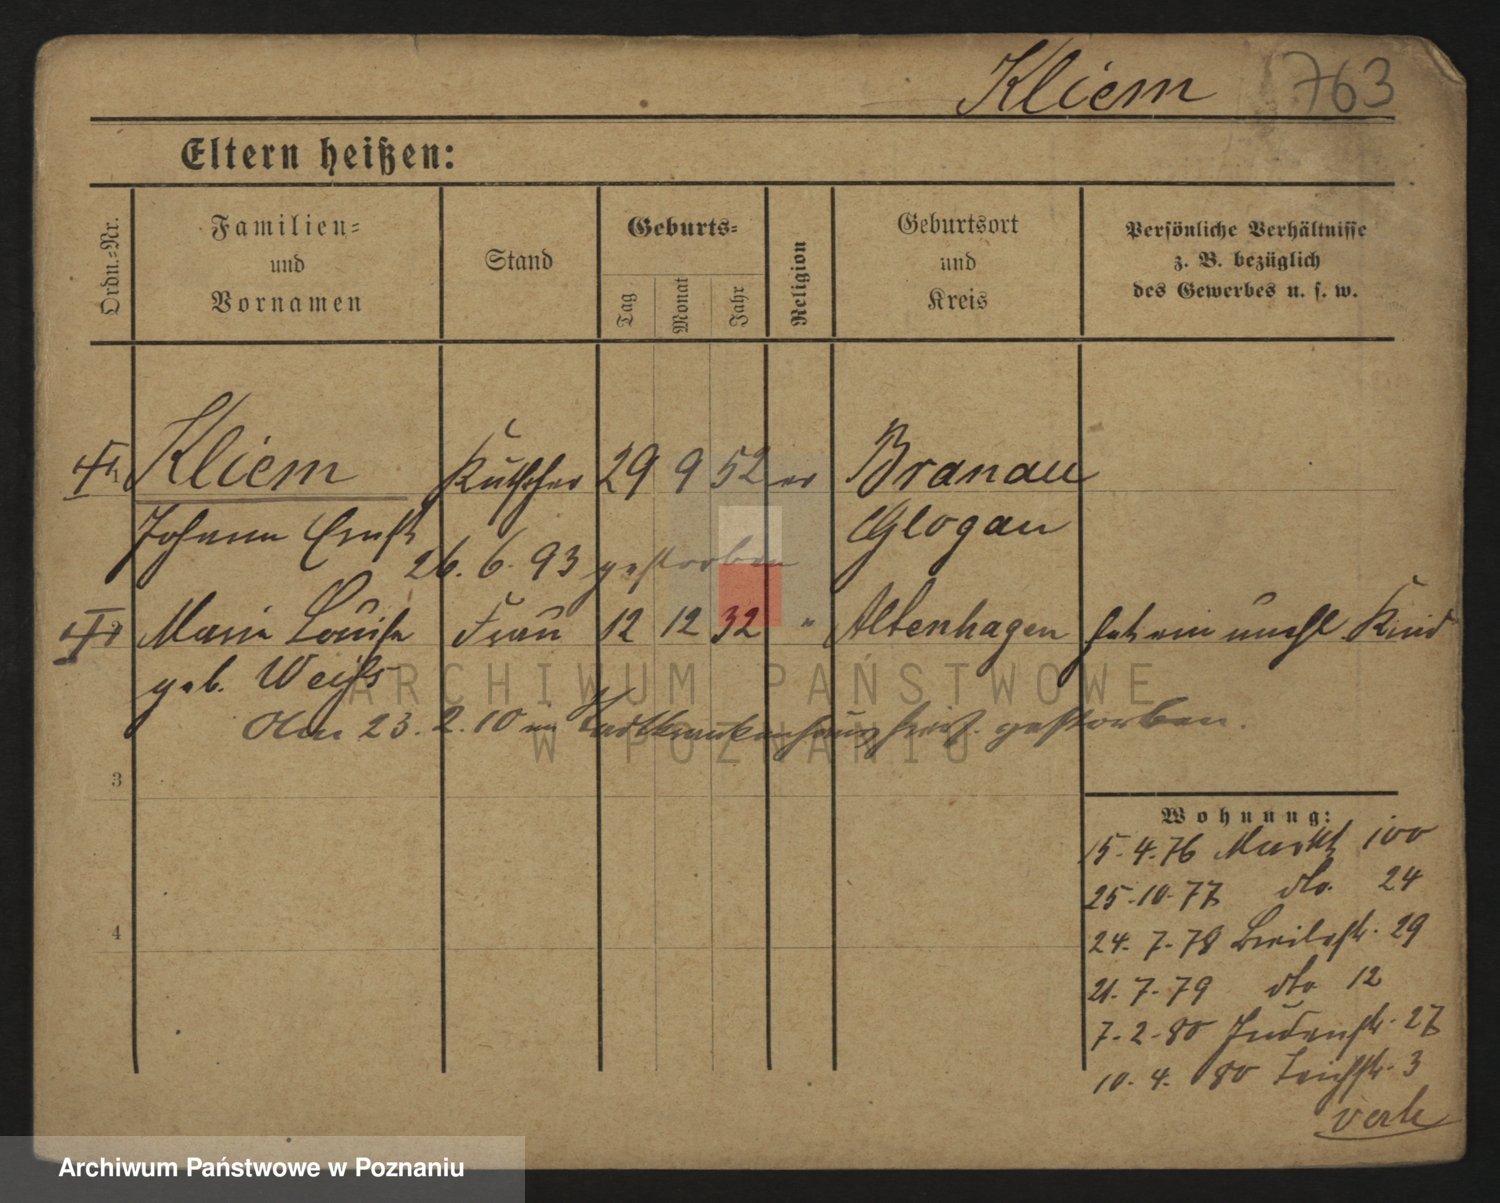 Kliem 763
Eltern heißen:
Ordn.-Nr.
Familien-
und
Vornamen
Stand
Geburts-
Tag
Monat
Jahr
Religion
Geburtsort
und
Kreis
Persönliche Verhältnisse
z. B. bezüglich
des Gewerbes u. s. w.
Kliem Kutscher 29 9 52 ev Branau
Johann Ernst Glogau
26. 6. 93 gestorben
Marie Louise Frau 12 12 32 " Altenhagen hat ein unehl Kind
geb. Weiß
Am 23. 2. 10 im Stadtkrankenhaus hies. gestorben.
3
4
Wohnung:
15.4.76 Markt 100
25.10.77 dto. 24
24.7.78 Breitestr. 29
21.7.79 dto 12
7.2.80 Judenstr. 27
10.4.80 Teichstr. 3
ARCHIWUM PAŃSTWOWE
W POZNANIU
Archiwum Państwowe w Poznaniu